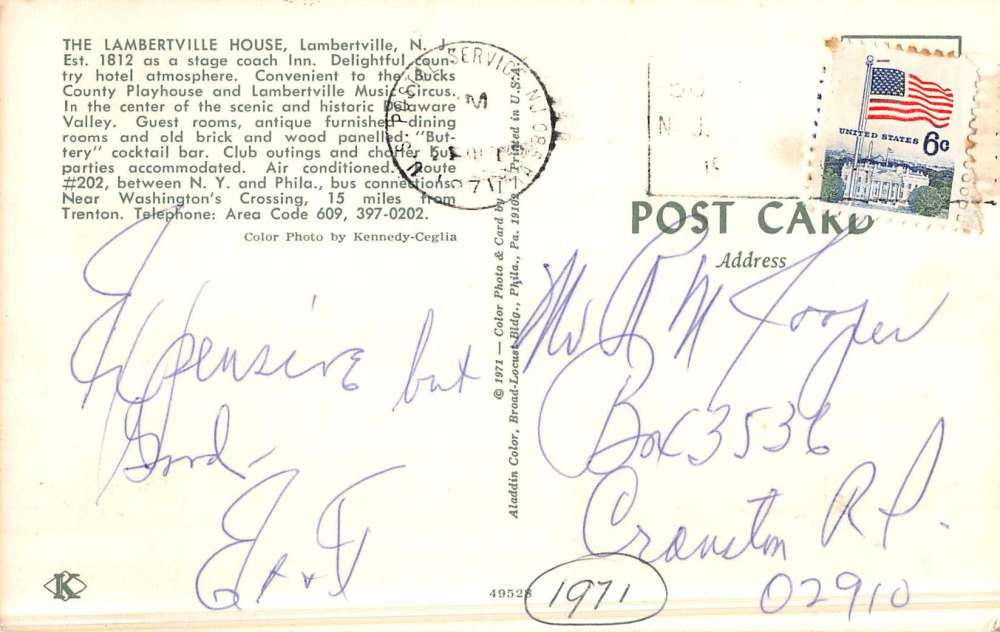 THE LAMBERTVILLE HOUSE, Lambertville, N. J.
Est. 1812 as a stage coach Inn. Delightful coun-
try hotel atmosphere. Convenient to the Bucks
County Playhouse and Lambertville Music Circus.
In the center of the scenic and historic Delaware
Valley. Guest rooms, antique furnished dining
rooms and old brick and wood panelled "But-
tery" cocktail bar. Club outings and charter bus
parties accommodated. Air conditioned. Route
#202, between N. Y. and Phila., bus connections.
Near Washington's Crossing, 15 miles from
Trenton. Telephone: Area Code 609, 397-0202.
Color Photo by Kennedy-Ceglia
Expensive but
Good-
K
© 1971 — Color Photo & Card by
Aladdin Color, Broad-Locust Bldg., Phila., Pa. 19102
Printed in U.S.A.
49528
U.S. POSTAL SERVICE NJ
N. J.
UNITED STATES 6c
POST CARD
Address
R M Hooper
Box 3536
Cranston R.I.
02910
1971